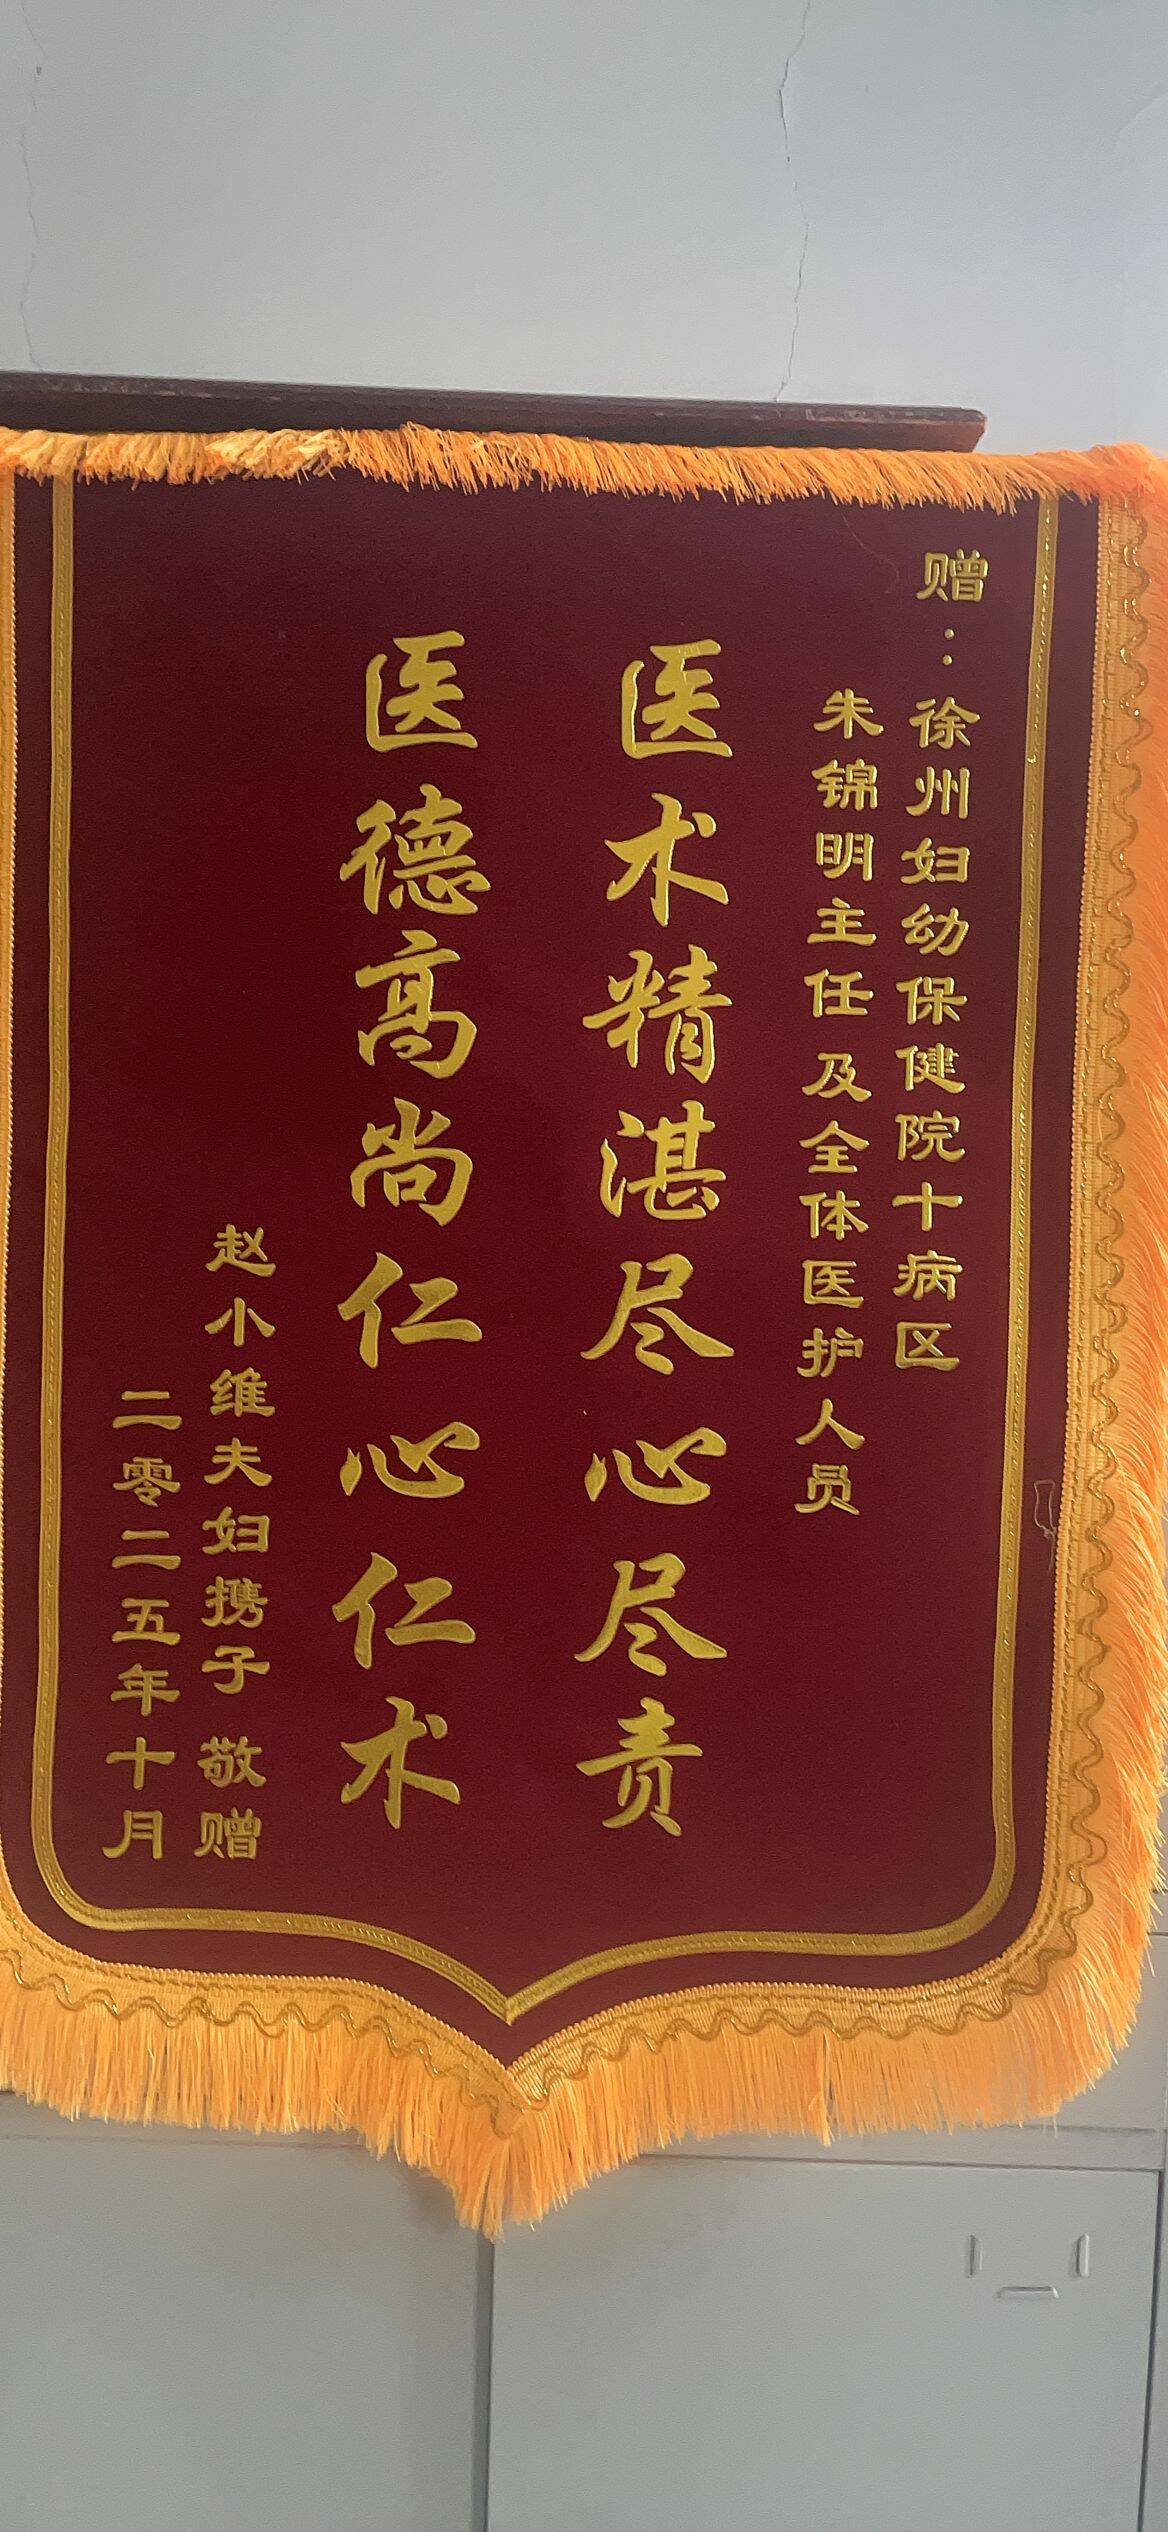 赠：徐州妇幼保健院十病区
朱锦明主任及全体医护人员
医术精湛尽心尽责
医德高尚仁心仁术
赵小维夫妇携子 敬赠
二零二五年十月